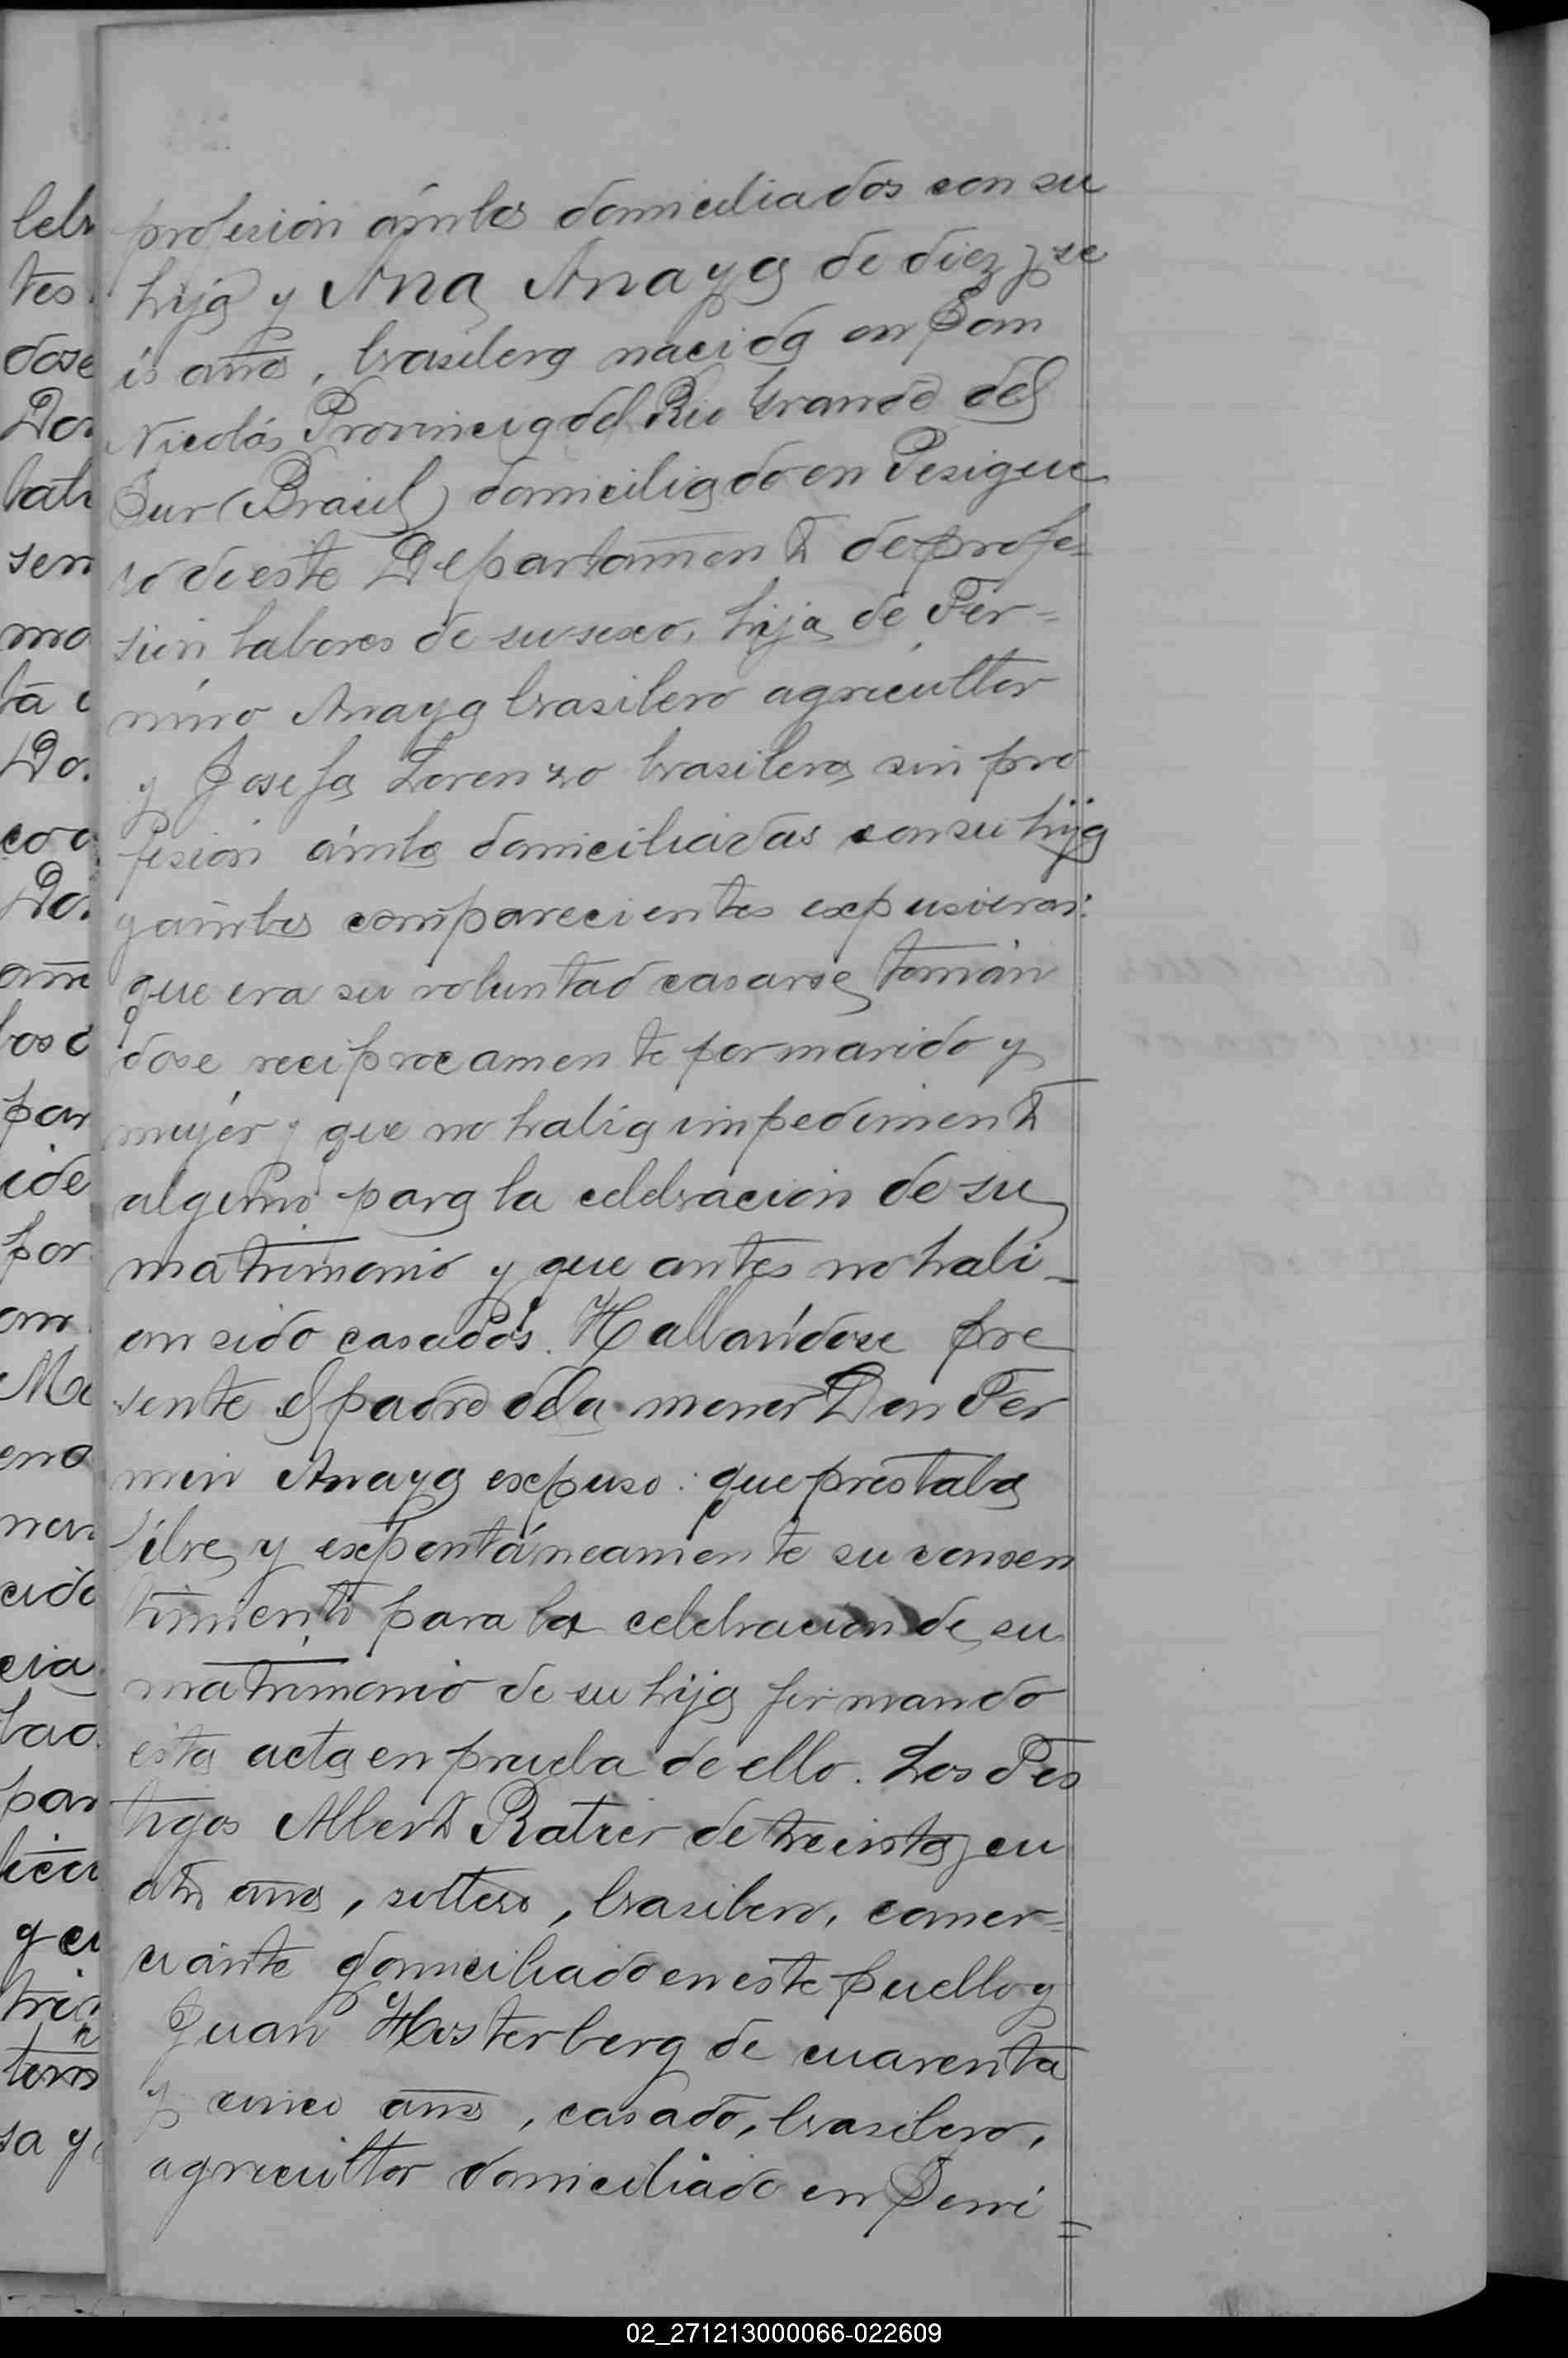 profesión ámbos domiciliados con su
hija y Ana Anaya de diez y se
is años, brasilera nacida en San
Nicolás Provincia del Rio Grande del
Sur (Brasil) domiciliado en Pesigue
ro de este Departamento de profe=
sión labores de su sexo, hija de Fer=
mino Anaya brasilero agricultor
y Josefa Lorenzo brasilera sin pro
fesión ámbos domiciliadas con su hija
y ámbos comparecientes expusieron:
que era su voluntad casarse, tomán
dose reciprocamente por marido y
mujer y que no habia impedimento
alguno para la celebración de su
matrimonio y que antes no habi-
an sido casados. Hallándose pre
sente el padre de la menor Don Fer
min Anaya expuso: que prestaba
libre y expontáneamente su consen
timiento para la celebracion de su
matrimonio de su hija firmando
esta acta en prueba de ello. Los Tes
tigos Alberto Ratier de treinta y cu
atro años, soltero, brasilero, comer=
ciante domiciliado en este pueblo y
Juan Hosterberg de cuarenta
y cinco años, casado, brasilero,
agricultor domiciliado en Serri=
lebr
tes
dose
Don
batr
sen
ma
Do.
co a
Do.
por
ide
por
Ma
cia
par
y cu
sa y
02_271213000066-022609